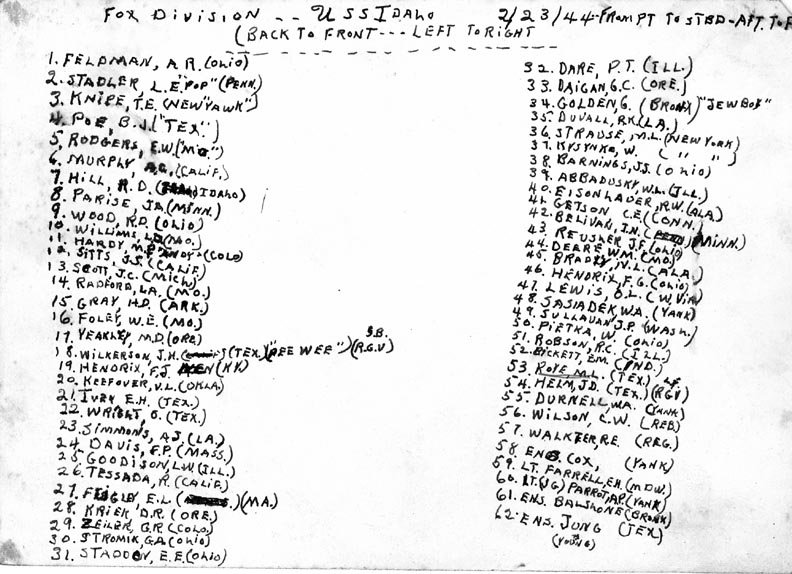 FOX DIVISION -- USS IDAHO 2/23/44-FROM PT TO STBD-AFT. TO F
(BACK TO FRONT --- LEFT TO RIGHT
1. FELDMAN, A R. (OHIO)
2. STADLER, L.E. "POP" (PENN.)
3. KNIPE, T.E. (NEW YAWK")
4. POE, B.J. ("TEX".)
5. RODGERS, E.W. ("MO.")
6. MURPHY, A.G. (CALIF.)
7. HILL, R.D. (IDAHO)
8. PARISE, J.A. (MINN.)
9. WOOD, R.D. (OHIO)
10. WILLIAMS, L.D. (MO.)
11. HARDY, M.P. "ANDY" (COLO)
12. SITTS, J.S. (CALIF.)
13. SCOTT, J.C. (MICH)
14. RADFORD, L.A. (MO.)
15. GRAY, H.D. (ARK.)
16. FOLEY, W.E. (MO.)
17. YEAKLEY, M.D. (ORE.)
18. WILKERSON, J.H. (TEX.) ("PEE WEE") (R.G.V) S.B.
19. HENDRIX, F.J. (KY)
20. KEEFOVER, V.L. (OKLA.)
21. IVEY E.H. (TEX.)
22. WRIGHT, O. (TEX.)
23. SIMMONS, A.J. (LA.)
24. DAVIS, F.P. (MASS.)
25. GOODISON, L.W. (ILL.)
26. TESSADA, R. (CALIF.)
27. E.L. (MA.)
28. KRIEK, D.R. (ORE.)
29. ZEILER, G.R. (COLO.)
30. STROMIK, G.A. (OHIO)
31. STADDON, E.E. (OHIO)
32. DARE, P.T. (ILL.)
33. DAIGAN, G.C. (ORE.)
34. GOLDEN, G. (BRONX) "JEW BOY"
35. DUVALL, R.K. (LA.)
36. STRAUSE, M.L. (NEW YORK)
37. KYSYNKO, W. ( " " )
38. BARNINGS, J.S. (OHIO)
39. ABBADUSKY, W.L. (ILL.)
40. EISONLAUER, R.W. (ALA)
41. GETSON C.E. (CONN.)
42. BELIVAN, I.N. (MINN.)
43. REUSHER J.F. (OHIO)
44. DEARE W.M. (MO.)
45. BRADLY, N.L. (ALA.)
46. HENDRIX, F.G. (OHIO)
47. LEWIS, O.L. (W. VIR)
48. SASIADEK, W.A. (YANK)
49. SULLAVAN J.P. (WASH.)
50. PIETKA, W. (OHIO)
51. ROBSON, R.C. (ILL.)
52. BICKETT, E.M. (IND.)
53. ROYE, M.L. (TEX.)
54. HELM, J.D. (TEX.) (RGV)
55. DURNELL, W.A. (YANK)
56. WILSON, C.W. (REB)
57. WALKTER R.E. (REG.)
58. ENS. COX, (YANK)
59. LT. FARRELL, E.H. (M.D.W.)
60. LT. (JG) PARROT, A.P. (YANK)
61. ENS. BALSHONE (BRONX)
62. ENS. JUNG (TEX)
(YOUNG)